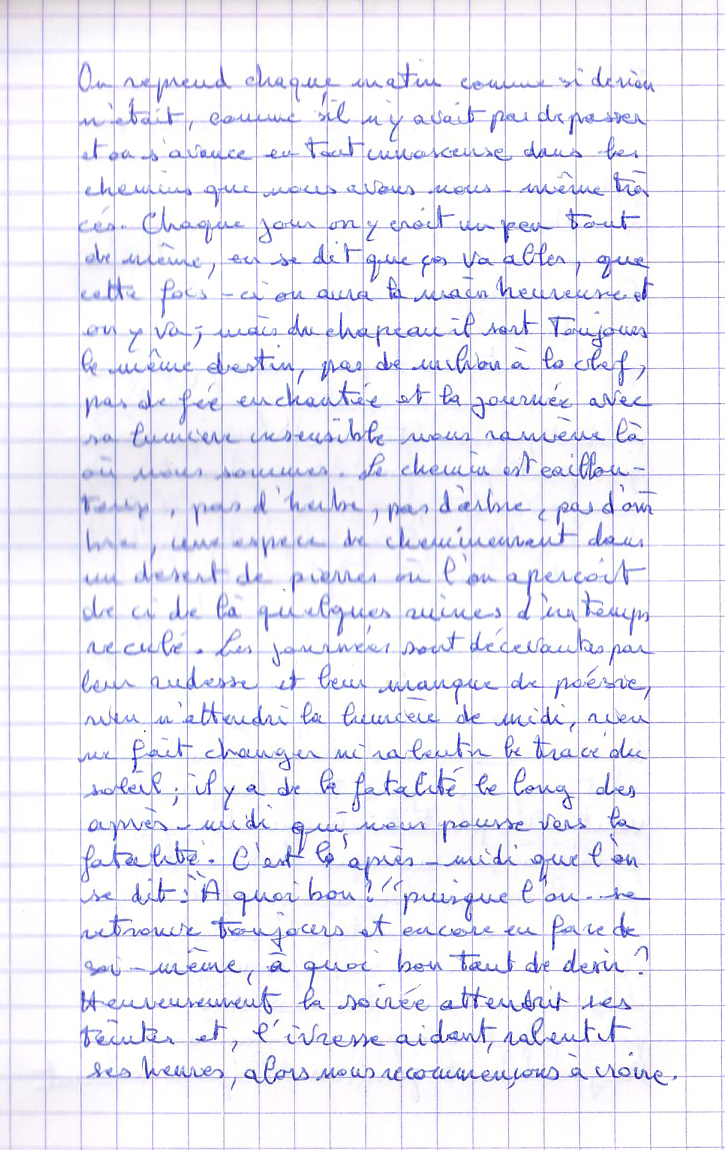 On reprend chaque matin comme si de rien
n'était, comme s'il n'y avait pas de passer
et on s'avance en tout innoscense dans les
chemins que nous avons nous-même tra
cés. Chaque jour on y croit un peu tout
de même, on se dit que ça va aller, que
cette fois-ci on aura la main heureuse et
on y va ; mais du chapeau il sort toujours
le même destin, pas de million à la clef,
pas de fée enchantée et la journée avec
sa lumière insensible nous ramène là
où nous sommes. Le chemin est caillou-
teux, pas d'herbe, pas d'arbre, pas d'om
bre, une espèce de cheminement dans
un désert de pierres où l'on aperçoit
de ci de là quelques ruines d'un temps
reculé. Les journées sont décevantes par
leur rudesse et leur manque de poésie,
rien n'attendri la lumière de midi, rien
ne fait changer ni ralentir le tracé du
soleil ; il y a de la fatalité le long des
après-midi qui nous pousse vers la
fatalité. C'est l'après-midi que l'on
se dit : "A quoi bon ?" puisque l'on se
retrouve toujours et encore en face de
soi-même, à quoi bon tant de désir ?
Heureusement la soirée attendrit ses
teintes et, l'ivresse aidant, ralentit
ses heures, alors nous recommençons à croire.